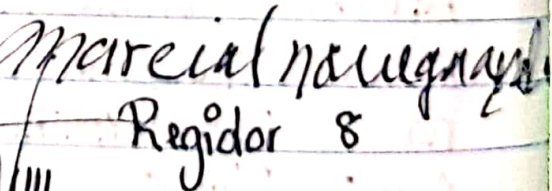 marcial
Regidor 8